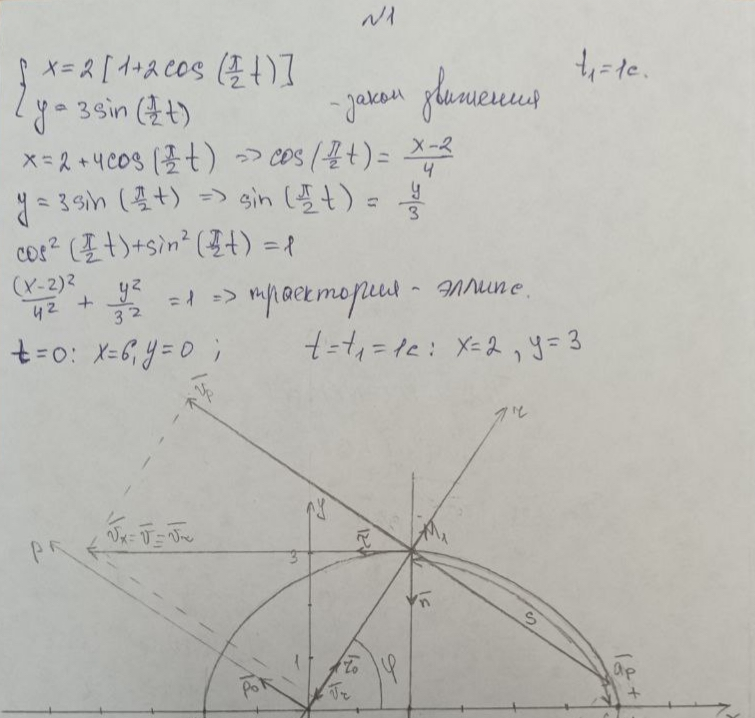 N1
{ x = 2 [1+2cos (π/2 t)]
y = 3 sin (π/2 t)
t₁ = 1c.
- закон движения
x = 2 + 4cos (π/2 t) => cos (π/2 t) = (x-2)/4
y = 3 sin (π/2 t) => sin (π/2 t) = y/3
cos² (π/2 t) + sin² (π/2 t) = 1
(x-2)²/4² + y²/3² = 1 => траектория - эллипс.
t=0: x=6, y=0 ; t=t₁=1c: x=2, y=3
v̄p
r
y
p
v̄x = v̄ = v̄τ
τ̄
M₁
3
n̄
S
1
r̄₀
φ
p̄₀
v̄r
āp
+